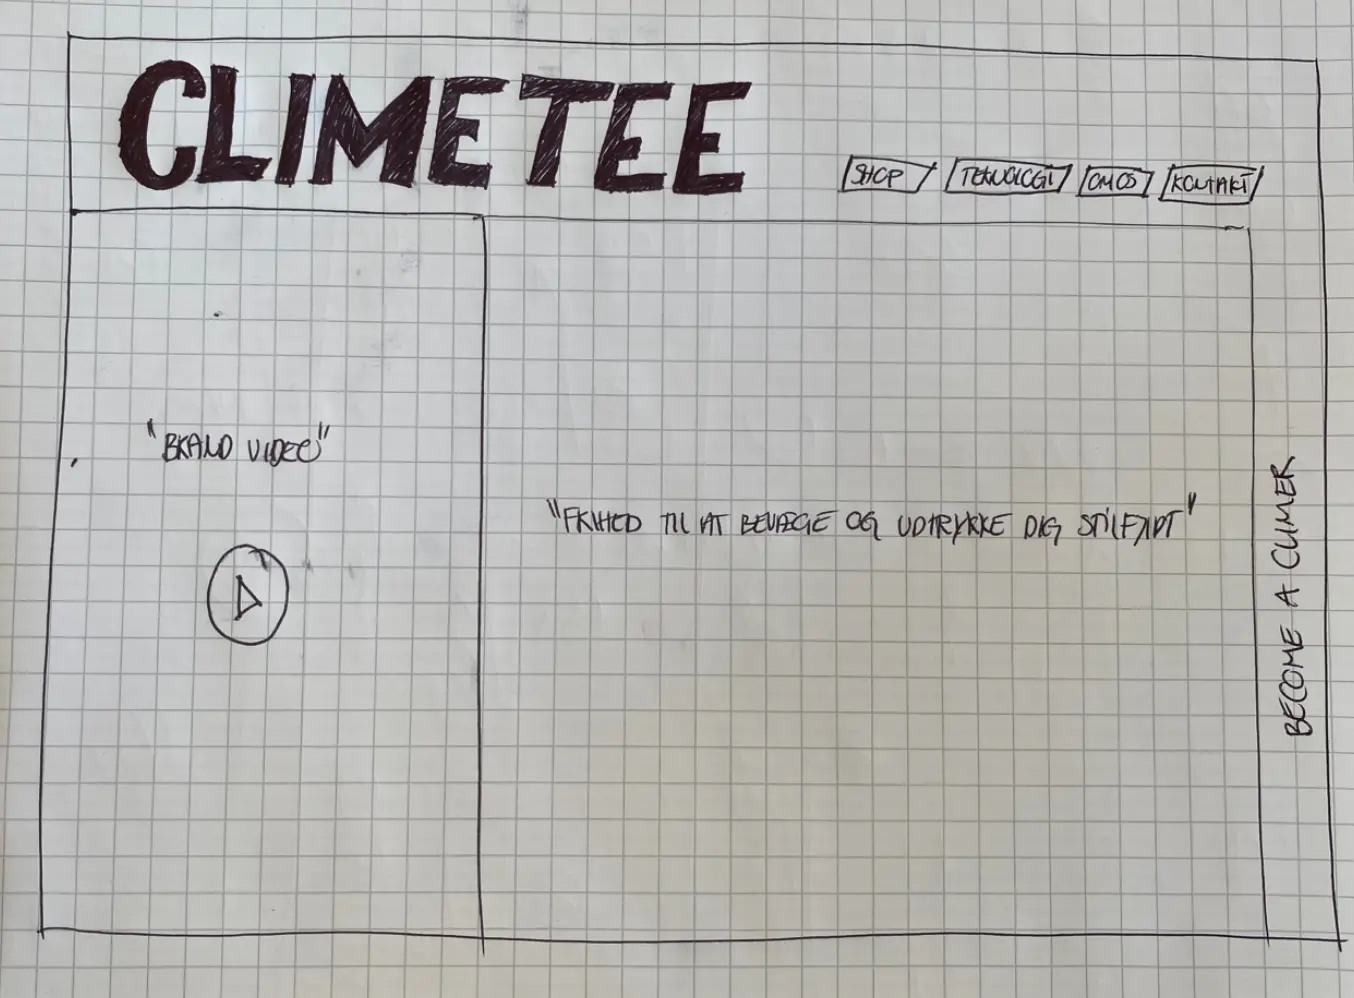 CLIMETEE
SHOP
TEKNOLOGI
OM OS
KONTAKT
"BRAND VIDEO"
"FRIHED TIL AT BEVÆGE OG UDTRYKKE DIG STILFULDT"
BECOME A CLIMER